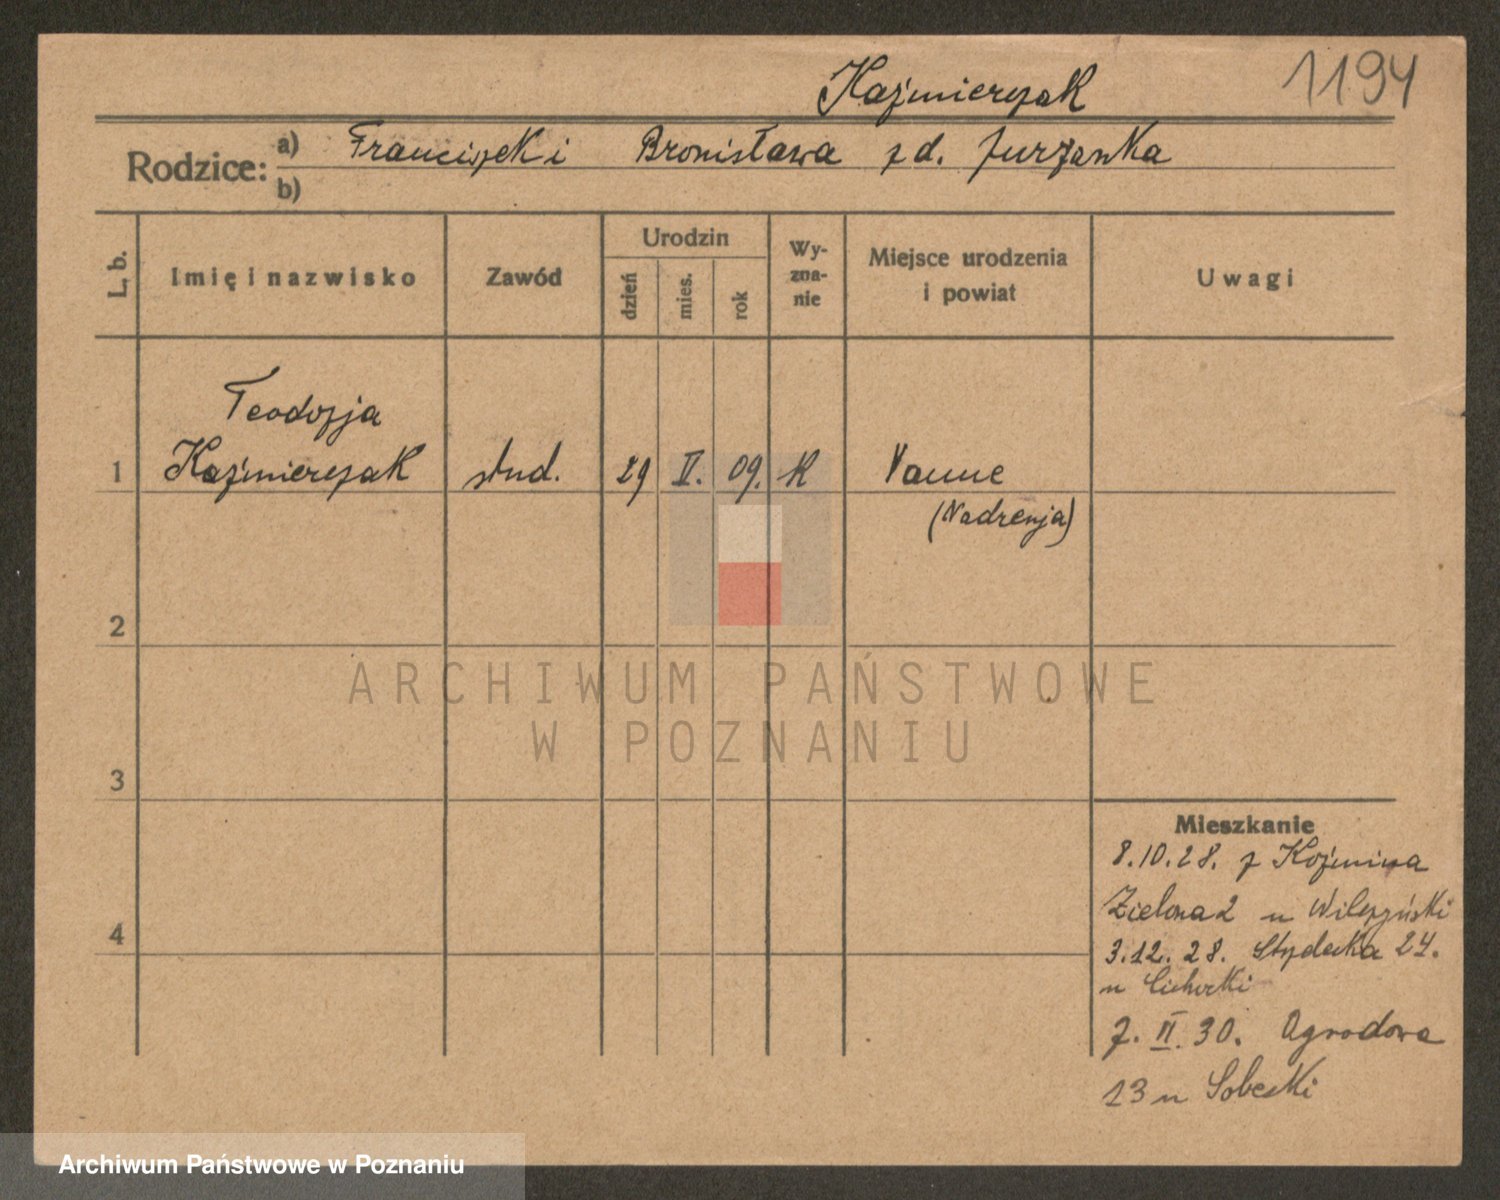 Kaźmierczak
1194
Rodzice: a) Franciszek i Bronisława z d. Jurzanka
b)
L. b.
Imię i nazwisko
Zawód
Urodzin
dzień
mies.
rok
Wy-
zna-
nie
Miejsce urodzenia
i powiat
Uwagi
Teodozja
1 Kaźmierczak stud. 29 V. 09. K Wanne
(Nadrenja)
2
3
4
Mieszkanie
8.10.28. z Koźmina
Zielona 2 u Wilczyński
3.12.28. Strzelecka 24.
u Cichocki
7. II. 30. Ogrodowa
13 u Sobecki
ARCHIWUM PAŃSTWOWE
W POZNANIU
Archiwum Państwowe w Poznaniu